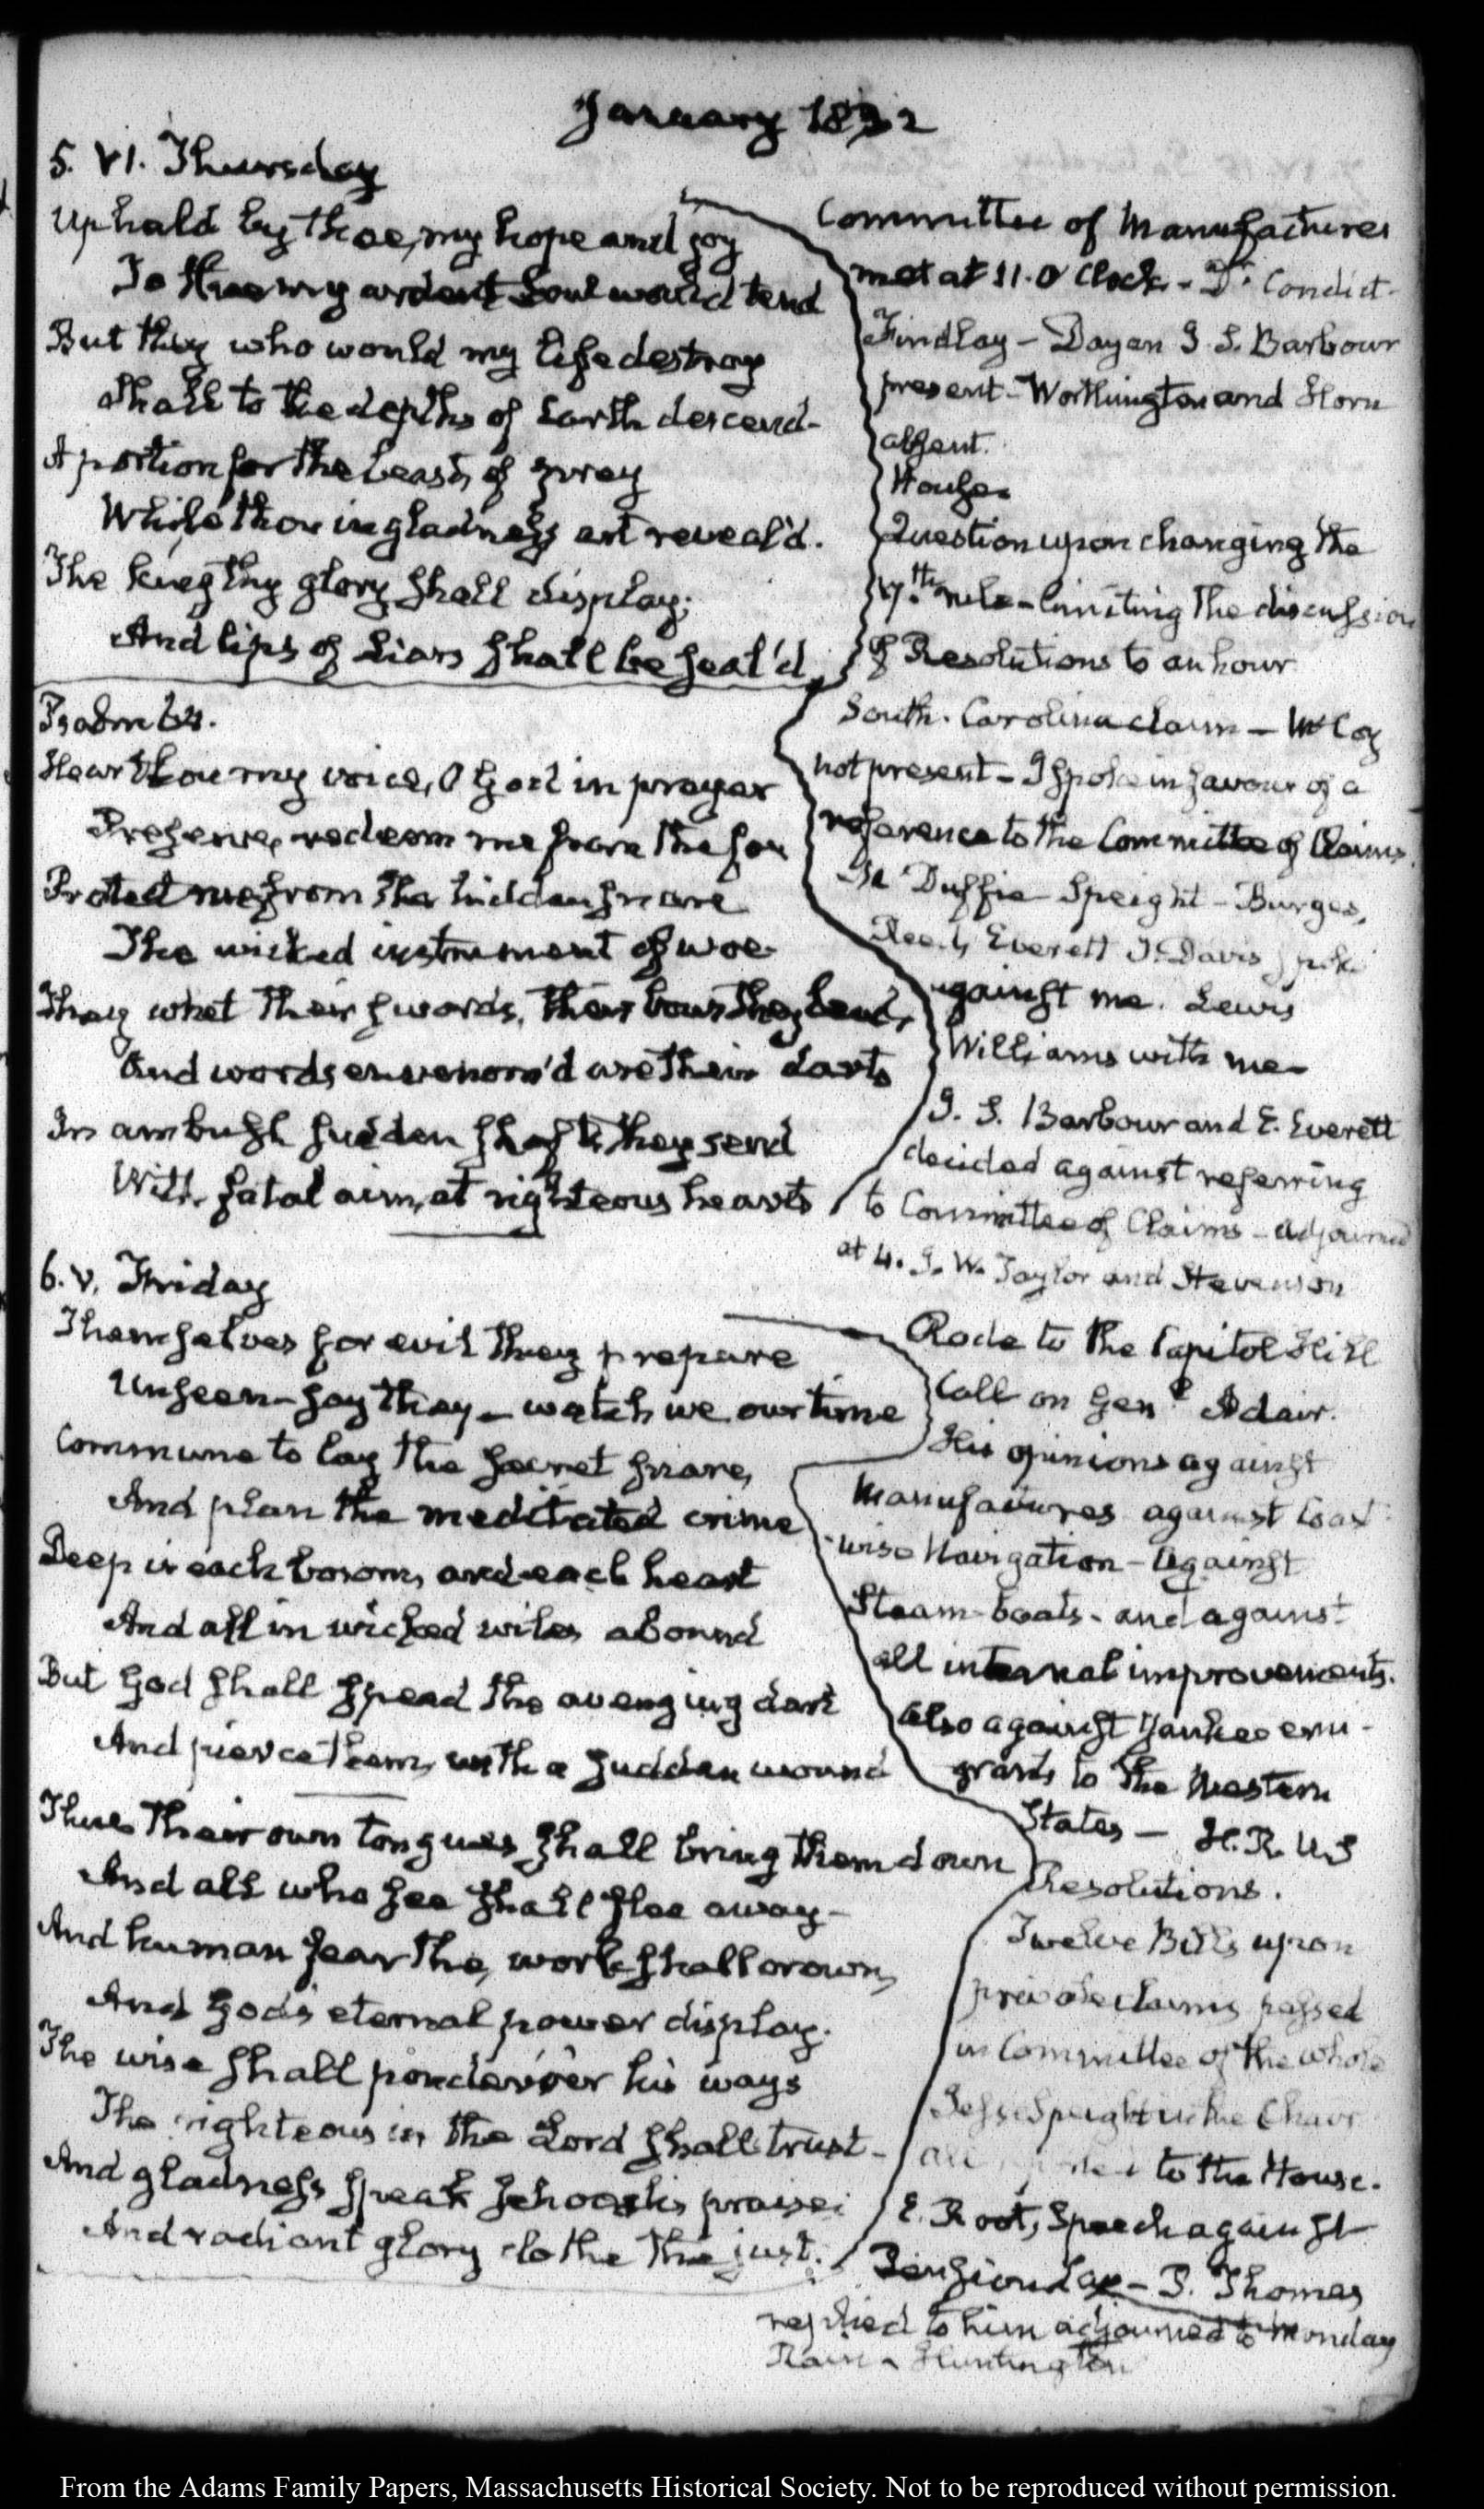 January 1832
5. VI. Thursday
Upheld by thee, my hope and joy
To thee my ardent Soul would tend
But they who would my life destroy
Shall to the depths of Earth descend-
A portion for the beasts of prey
While thou in gladness art reveal'd.
The king thy glory shall display;
And lips of Liars shall be seal'd.
Psalm 64.
Hear thou my voice, O God in prayer
Preserve, redeem me from the foe
Protect me from the hidden snare
The wicked instrument of woe-
They whet their swords, their bows they bend,
And words envenom'd are their darts
In ambush sudden shafts they send
With fatal aim, at righteous hearts
6. V. Friday
Themselves for evil they prepare
Unseen- say they- watch we our time
Commune to lay the secret snare,
And plan the meditated crime
Deep is each bosom, and each heart
And all in wicked wiles abound
But God shall spread the avenging dart
And pierce them, with a sudden wound
Thus their own tongues shall bring them down
And all who see shall flee away-
And human fear the work shall crown,
And God's eternal power display.
The wise shall ponder o'er his ways
The righteous in the Lord shall trust-
And gladness speak Jehovah's praise;
And radiant glory clothe the just.
Committee of Manufactures
met at 11. O'Clock- Dr. Condict-
Findlay- Dayan J. S. Barbour
present- Worthington and Horn
absent.
House
Question upon changing the
17.th rule- limiting the discussion
of Resolutions to an hour
South. Carolina claim- McCoy
not present- I spoke in favour of a
reference to the Committee of Claims.
Mc Duffie Speight- Burges,
Reed, Everett J. Davis spoke
against me. Lewis
Williams with me-
J. S. Barbour and E. Everett
decided against referring
to Committee of Claims- adjourned
at 4. J. W. Taylor and Stevenson
Rode to the Capitol Hill
Call on Genl Adair.
His opinions against
Manufactures against Coast
-wise Navigation- against
Steam-boats- and against
all internal improvements.
Also against Yankee emi-
grants to the Western
States- H. R. U.S
Resolutions.
Twelve Bills upon
private claims passed
in Committee of the whole
Jesse Speight in the Chair
all to the House.
E. Root's Speech against
Pension Law- P. Thomas
replied to him adjourned to Monday
Huntington